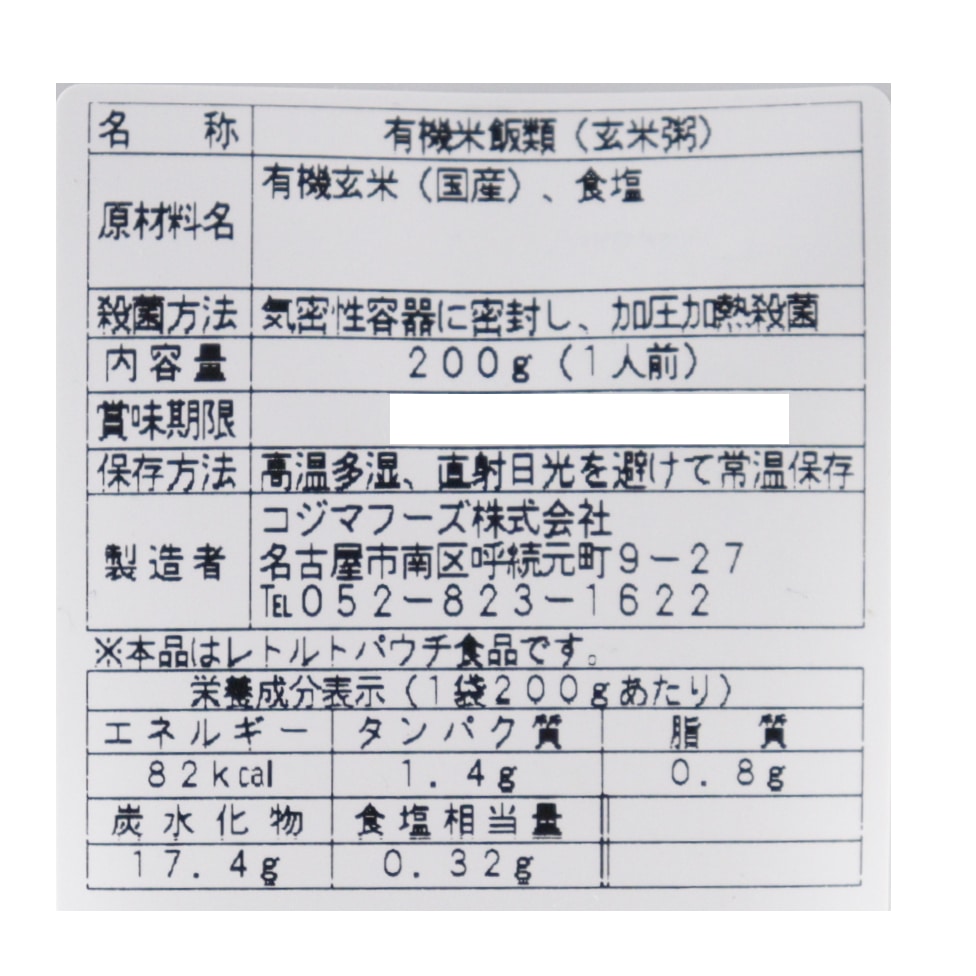 名称 有機米飯類（玄米粥）
原材料名 有機玄米（国産）、食塩
殺菌方法 気密性容器に密封し、加圧加熱殺菌
内容量 200g（1人前）
賞味期限
保存方法 高温多湿、直射日光を避けて常温保存
製造者 コジマフーズ株式会社
名古屋市南区呼続元町9－27
℡052－823－1622
※本品はレトルトパウチ食品です。
栄養成分表示（1袋200gあたり）
エネルギー タンパク質 脂質
82kcal 1.4g 0.8g
炭水化物 食塩相当量
17.4g 0.32g